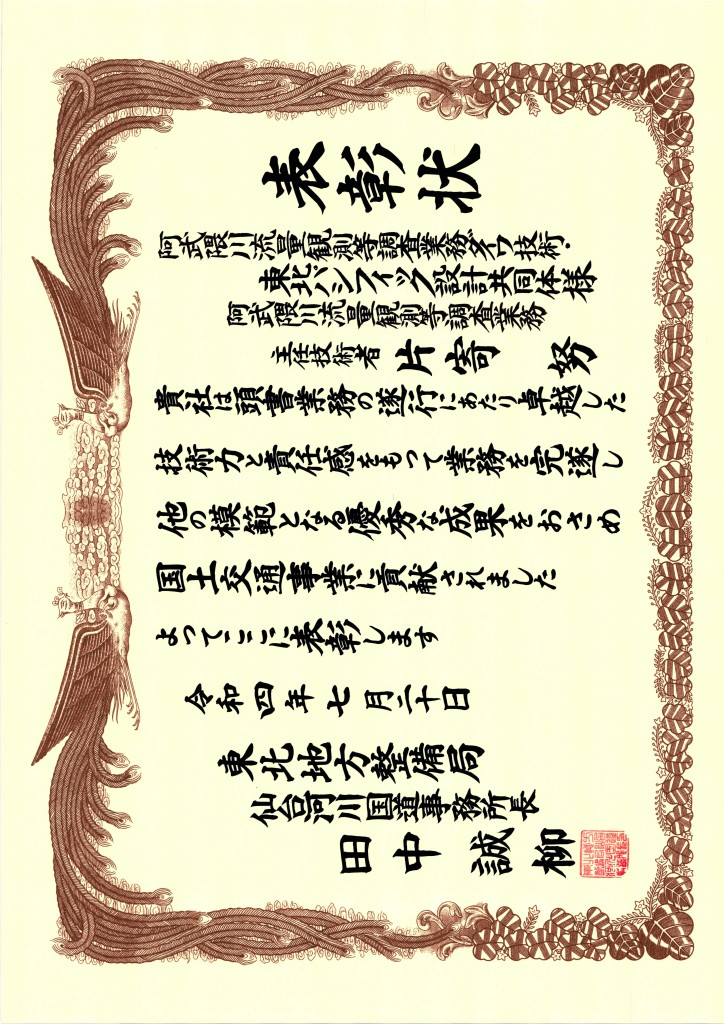 表彰状
阿武隈川流量観測等調査業務ダイワ技術・
東北パシフィック設計共同体様
阿武隈川流量観測等調査業務
主任技術者 片寄 努
貴社は頭書業務の遂行にあたり卓越した
技術力と責任感をもって業務を完遂し
他の模範となる優秀な成果をおさめ
国土交通事業に貢献されました
よってここに表彰します
令和四年七月二十日
東北地方整備局
仙台河川国道事務所長
田中誠柳